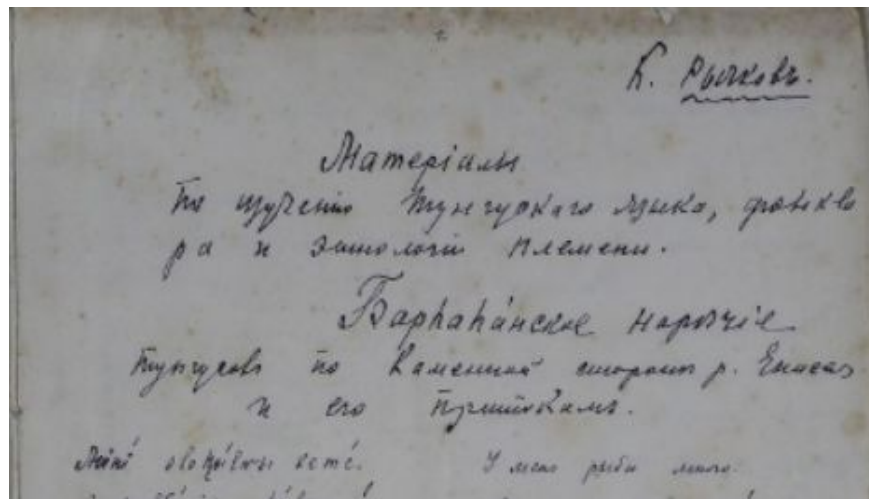 К. Рычковъ.
Матеріалы
по изученію тунгускаго языка, фолькло
ра и этнологіи племени.
Барhаhа́нское нарѣчіе
тунгусовъ по каменной сторонѣ р. Енисея
и его притокамъ.
У меня рыбы много.